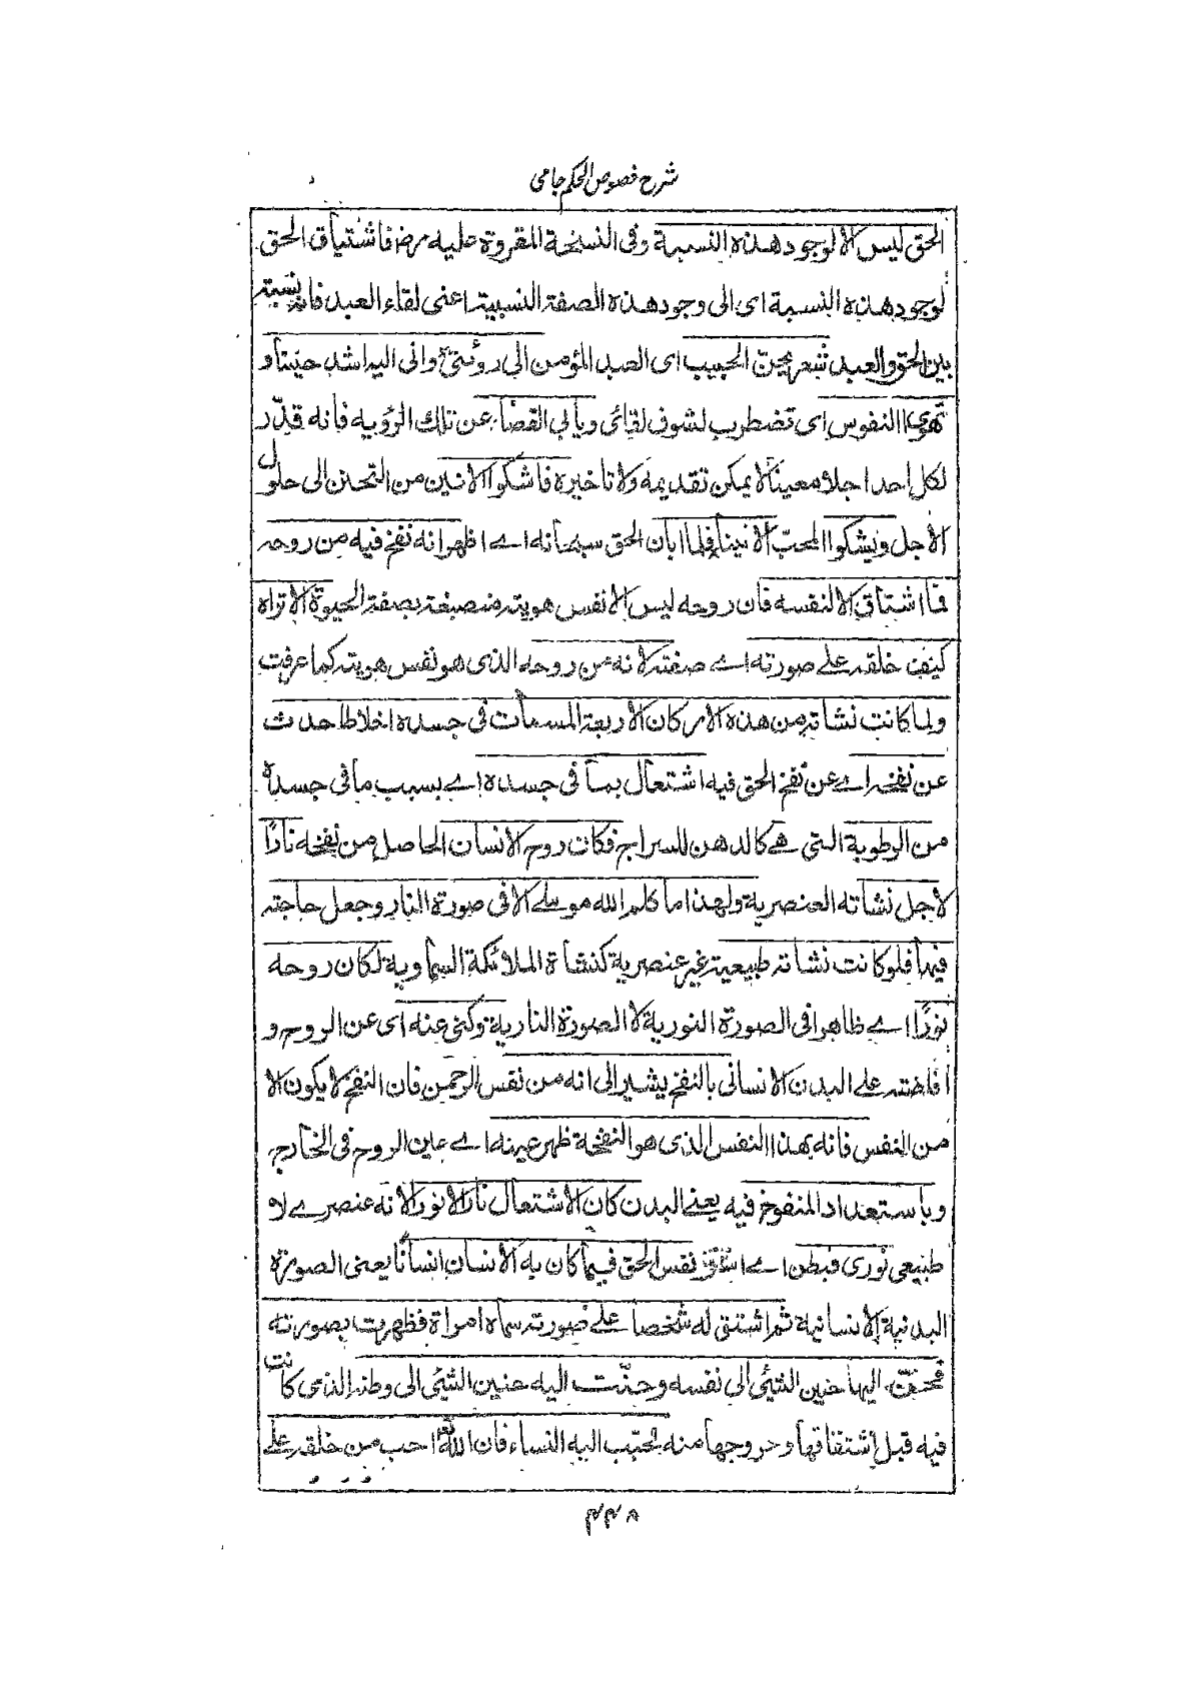 شرح فصوص الحكم جامى
الحق ليس الا لوجود هذه النسبة وفى النسخة المقروة عليه رض فاشتياق الحق
لوجود هذه النسبة اى الى وجود هذه الصفة النسبية اعنى لقاء العبد فانه نسبة
بين الحق والعبد شعر يحنّ الحبيب اى العبد المؤمن الى رؤيتى وانى اليه اشد حنينا و
تهوى النفوس اى تضطرب لشوق لقائى ويأبى القضا عن تلك الرؤية فانه قدّر
لكل احد اجلا معينا لا يمكن تقديمه ولا تاخيره فاشكوا الانين من التحنن الى حلول
الاجل ويشكوا المحبّ الانينا فلما ابان الحق سبحانه اے اظهر انه نفخ فيه من روحه
فما اشتاق الا لنفسه فان روحه ليس الا نفس هويته منصبغة بصفة الحيوة الا تراه
كيف خلقه علے صورته اے صفته لانه من روحه الذى هو نفس هويته كما عرفت
ولما كانت نشاته من هذه الاركان الاربعة المسمات فى جسده اخلاطا حدث
عن نفخه اے عن نفخ الحق فيه اشتعال بما فى جسده اے بسبب ما فى جسده
من الرطوبة التى هے كالدهن للسراج فكان روح الانسان الحاصل من نفخه نارًا
لاجل نشاته العنصرية ولهذا ما كلم الله موسلے الا فى صورة النار وجعل حاجته
فيها فلو كانت نشاته طبيعية غير عنصرية كنشاة الملائكة السماوية لكان روحه
نورًا اے ظاهرا فى الصورة النورية لا الصورة النارية وكنى عنه اى عن الروح و
افاضته علے البدن الانسانى بالنفخ يشير الى انه من نفس الرحمن فان النفخ لا يكون الا
من النفس فانه بهذا النفس الذى هو النفخة ظهر عينه اے عين الروح فى الخارج
وباستعداد المنفوخ فيه يعنے البدن كان الاشتعال نارا لا نورا لانه عنصرے لا
طبيعى نورى فبطن اے استتر نفس الحق فيما كان به الانسان انسانًا يعنى الصورة
البدنية الانسانية ثم اشتق له شخصا علے صورته سماه امراة فظهرت بصورته
فحنّ اليها حنين الشئى الى نفسه وحنّت اليه حنين الشئى الى وطنه الذى كانت
فيه قبل اشتقاقها وخروجها منه فحبّب اليه النساء فان الله احب من خلقه علے